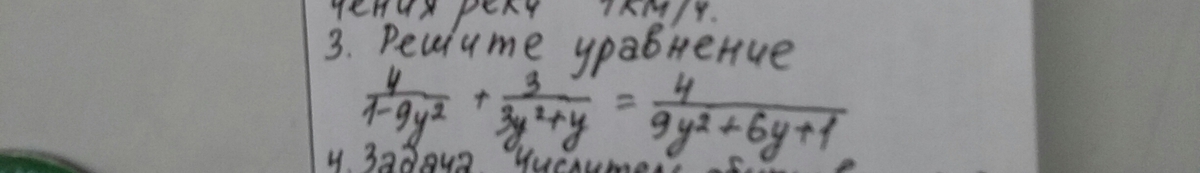 чения реки 1 км/ч.
3. Решите уравнение
4/(1-9y²) + 3/(3y²+y) = 4/(9y²+6y+1)
4. Задача. Числитель